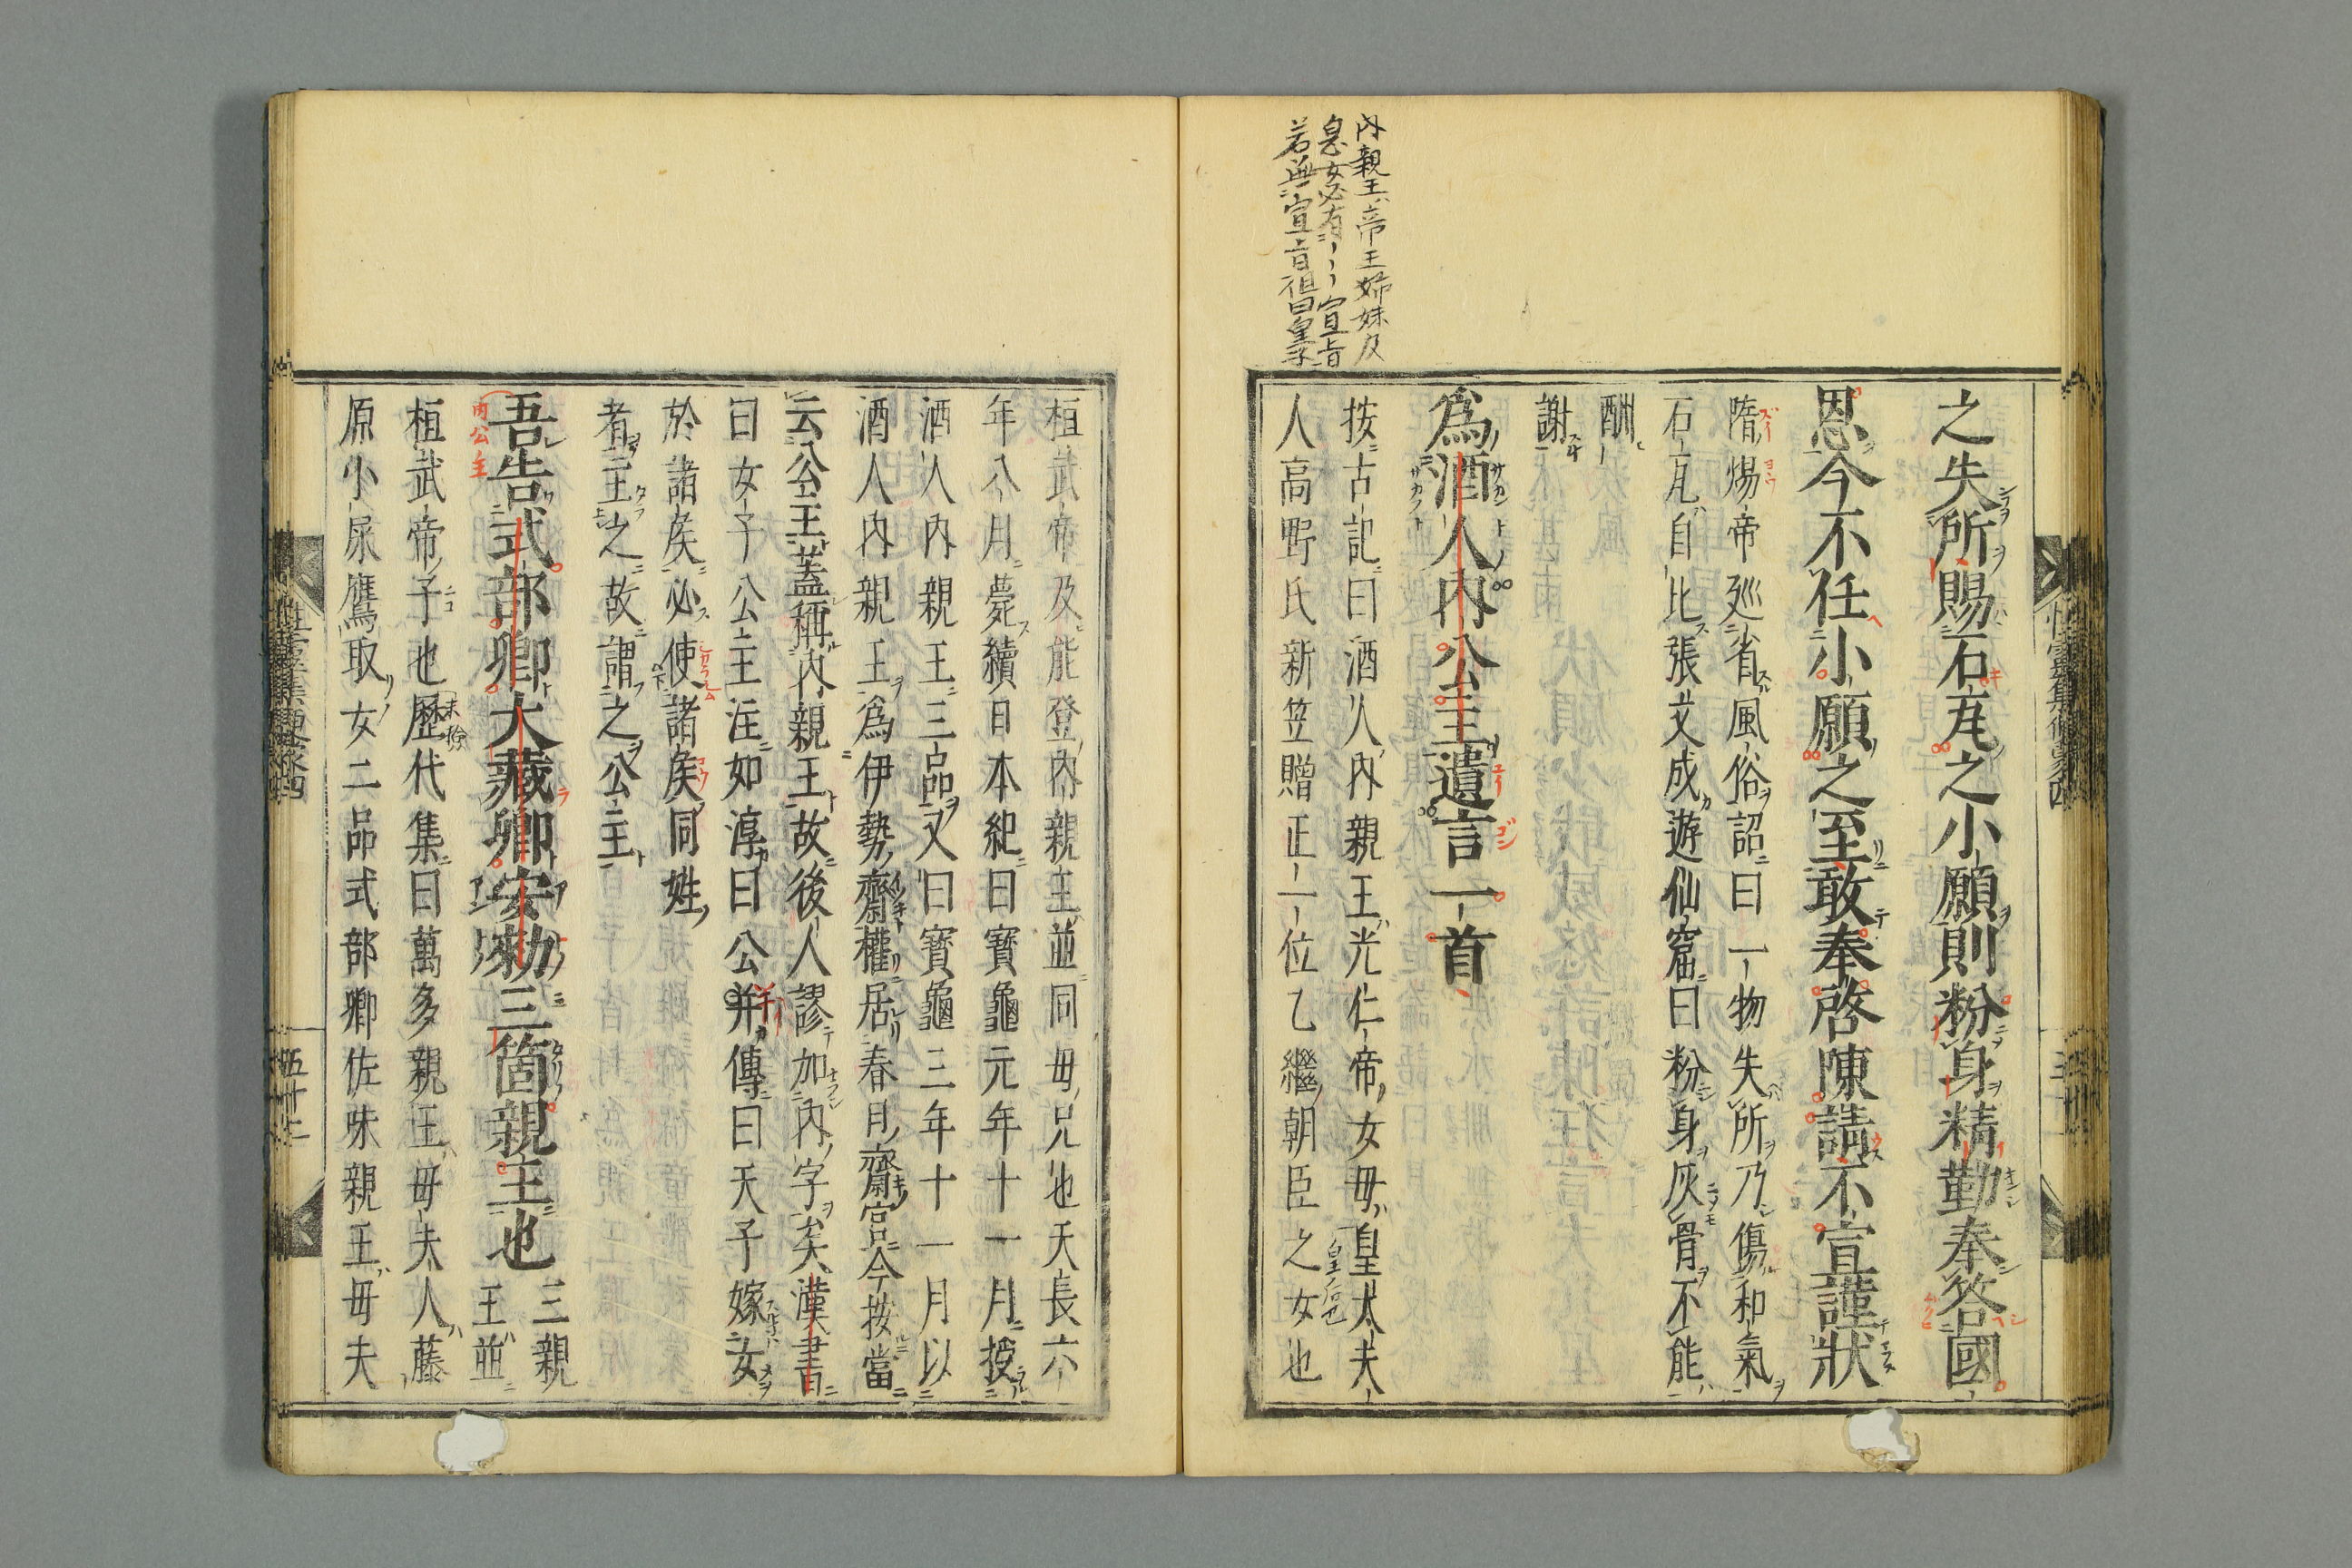 内親王帝王姉妹及
皇女必有〻〻〻宣旨
若無宣旨徂曰皇子
之失所賜一石瓦之小願則粉身精勤奉答國
恩今不任小願之至敢奉啓陳請不宣謹狀
隋煬帝巡省風俗詔曰一物失所乃傷和氣
石瓦自比張文成遊仙窟曰粉身灰骨不能
酬
謝
爲酒人内公主遺言一首
按古記曰酒人内親王光仁帝女毋皇太夫
皇后也
人高野氏新笠贈正一位乙繼朝臣之女也
桓武帝及能登内親王並同毋兄也天長六
年八月薨續日本紀曰寶龜元年十一月授
酒人内親王三品又曰寶龜三年十一月以
酒人内親王爲伊勢齋權居春日齋宮今按當
云公主蓋稱内親王故後人謬加内字矣漢書
曰女子公主注如淳曰公羊傳曰天子嫁女
於諸矦必使諸矦同姓
者主之故謂之公主
内公主
吾告式部卿大藏卿安勅三箇親王也
三親
王並
桓武帝子也歷代集曰萬多親王毋夫人藤
原小屎鷹取女二品式部卿佐味親王毋夫
五十二